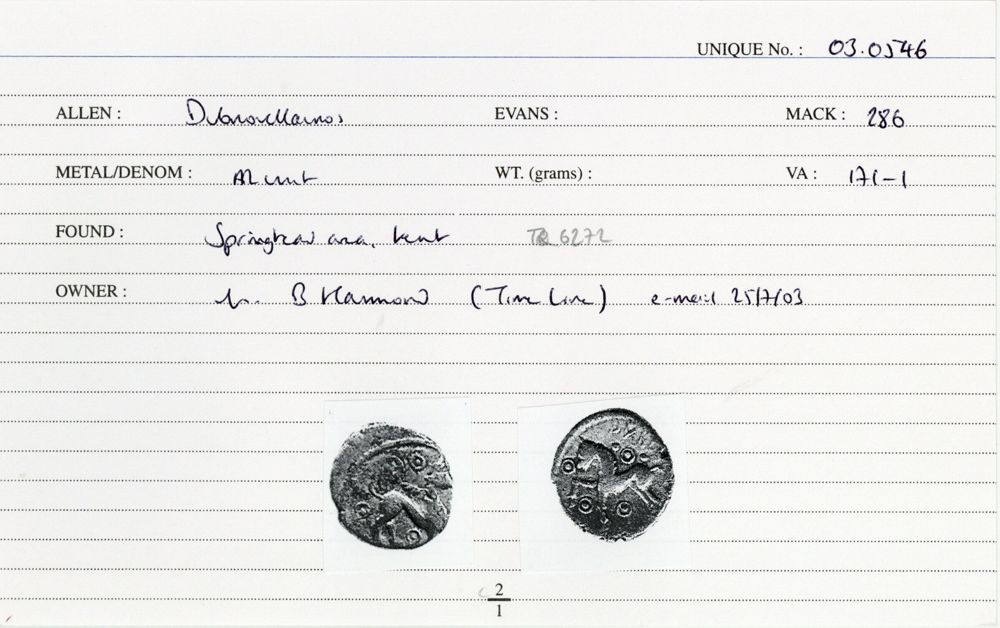 UNIQUE No. : 03.0546
ALLEN : Dubnovellaunos EVANS : MACK : 286
METAL/DENOM : AR unit WT. (grams) : VA : 171-1
FOUND : Springhead area, Kent TQ 6272
OWNER : B Hammond (Time Line) e-mail 25/7/03
2
1